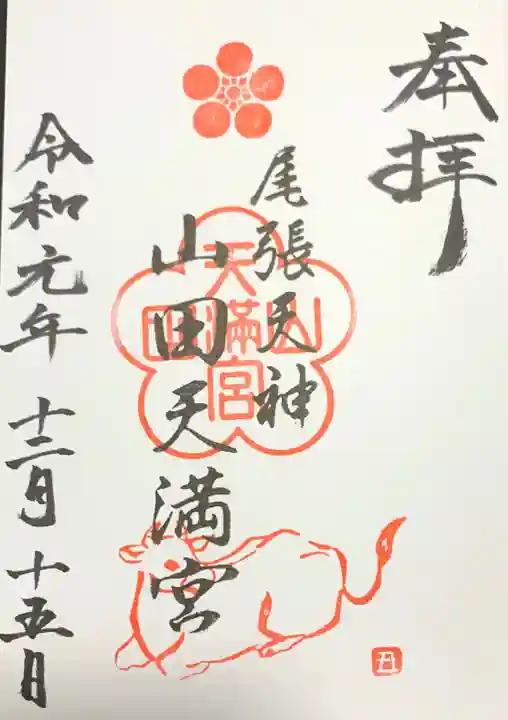 奉拝
尾張天神
山田天満宮
山田天満宮
令和元年 十二月 十五日
丑